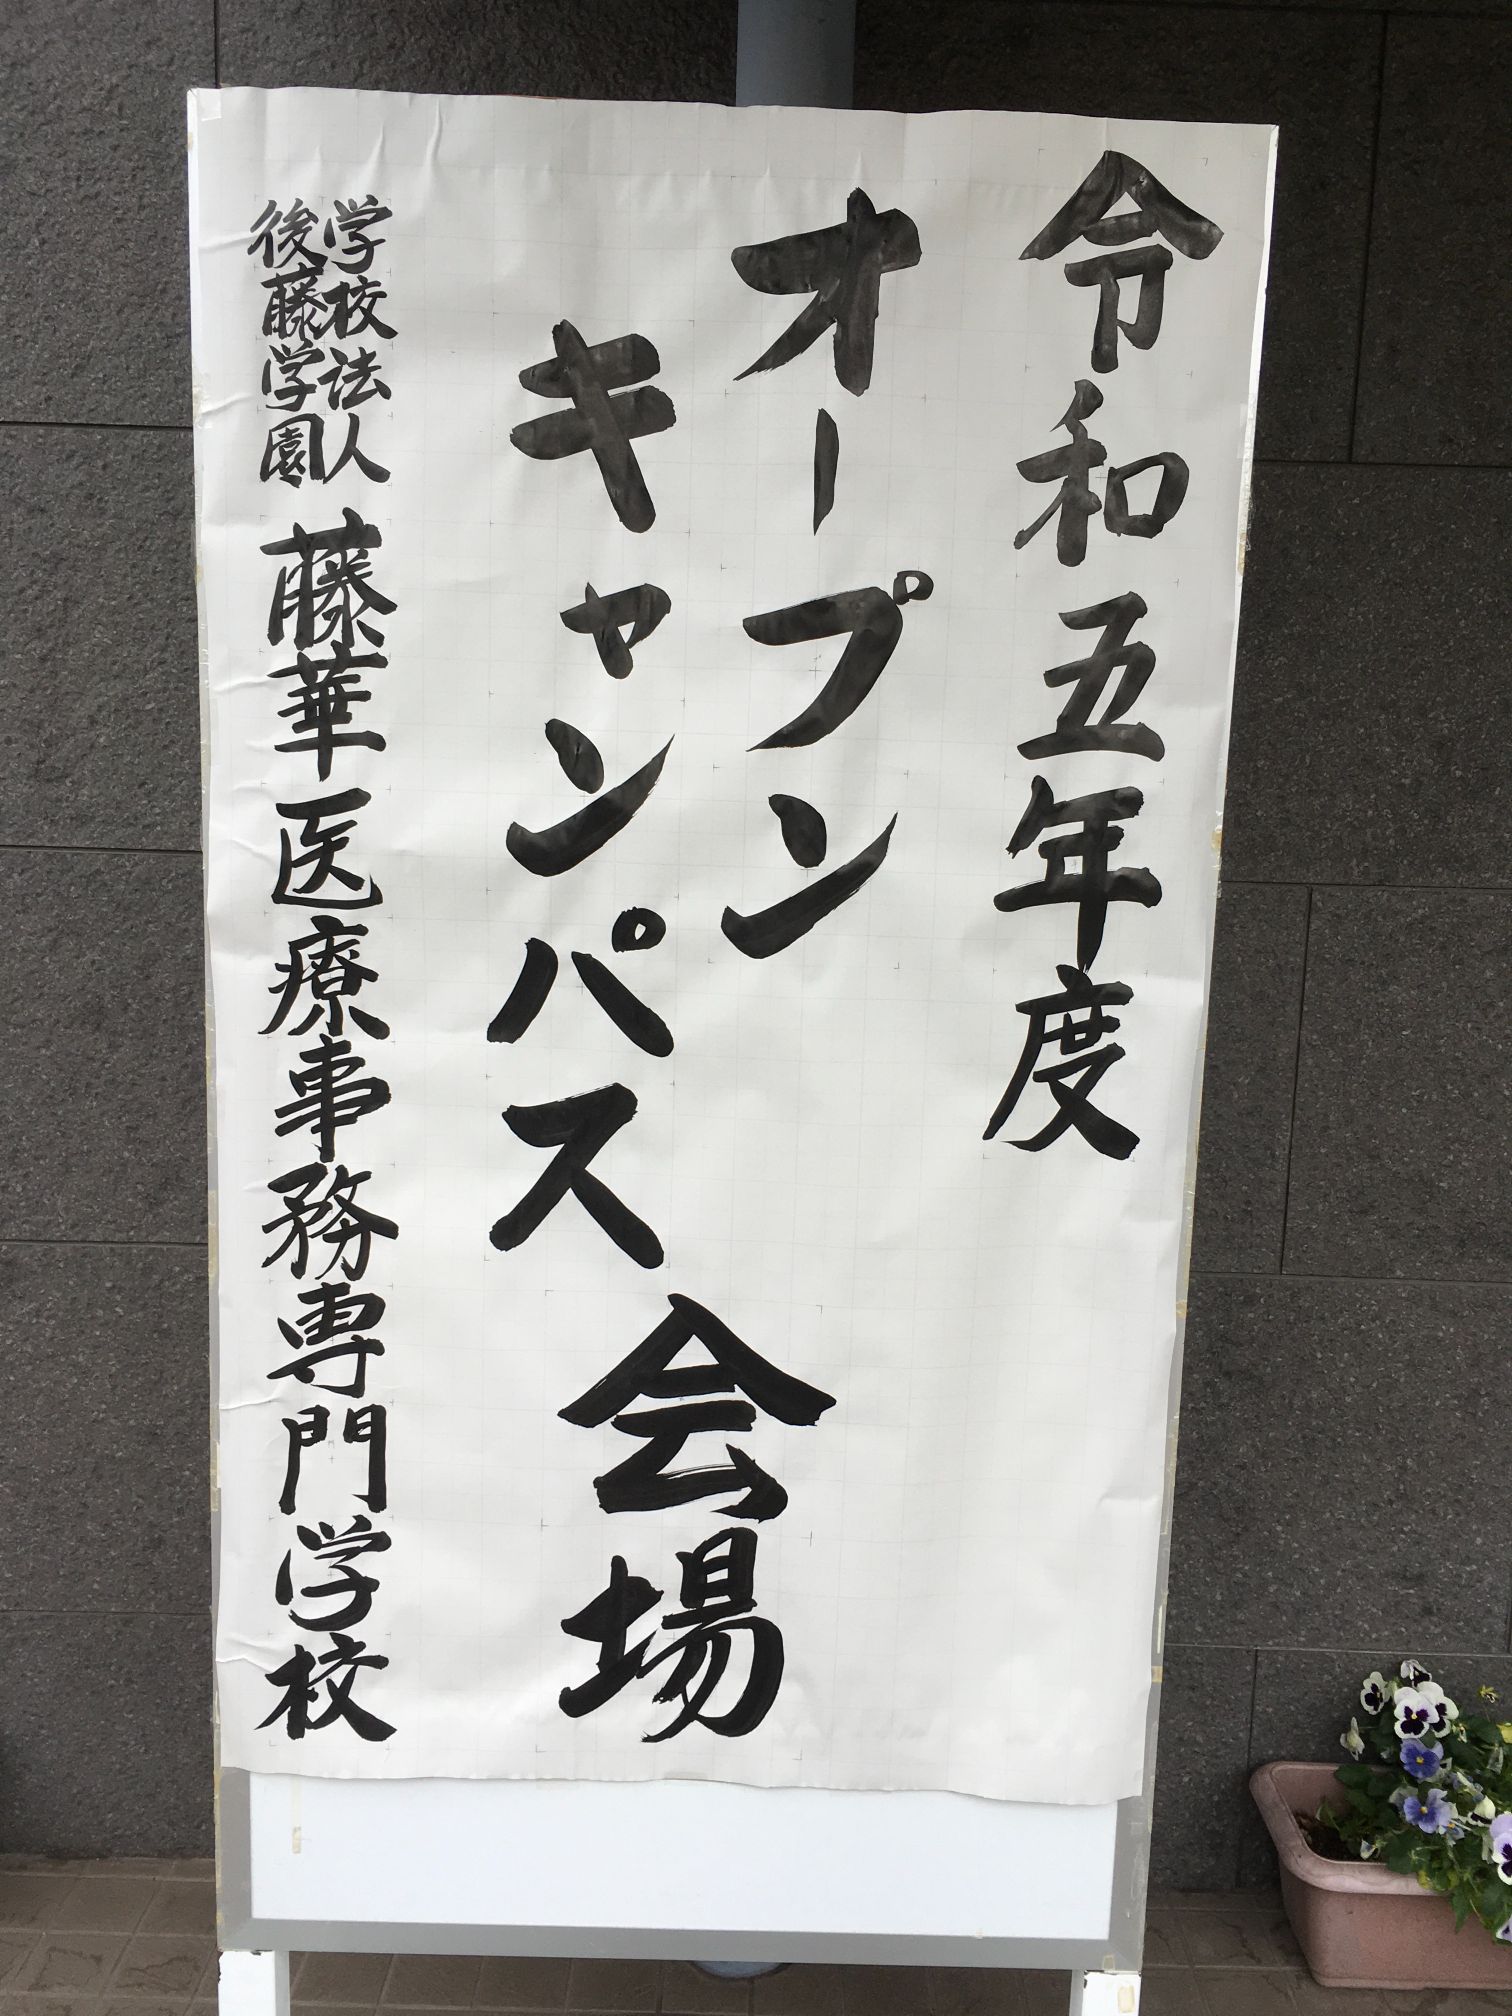 令和五年度
オープン
キャンパス
会場
学校法人
後藤学園
藤華医療事務専門学校